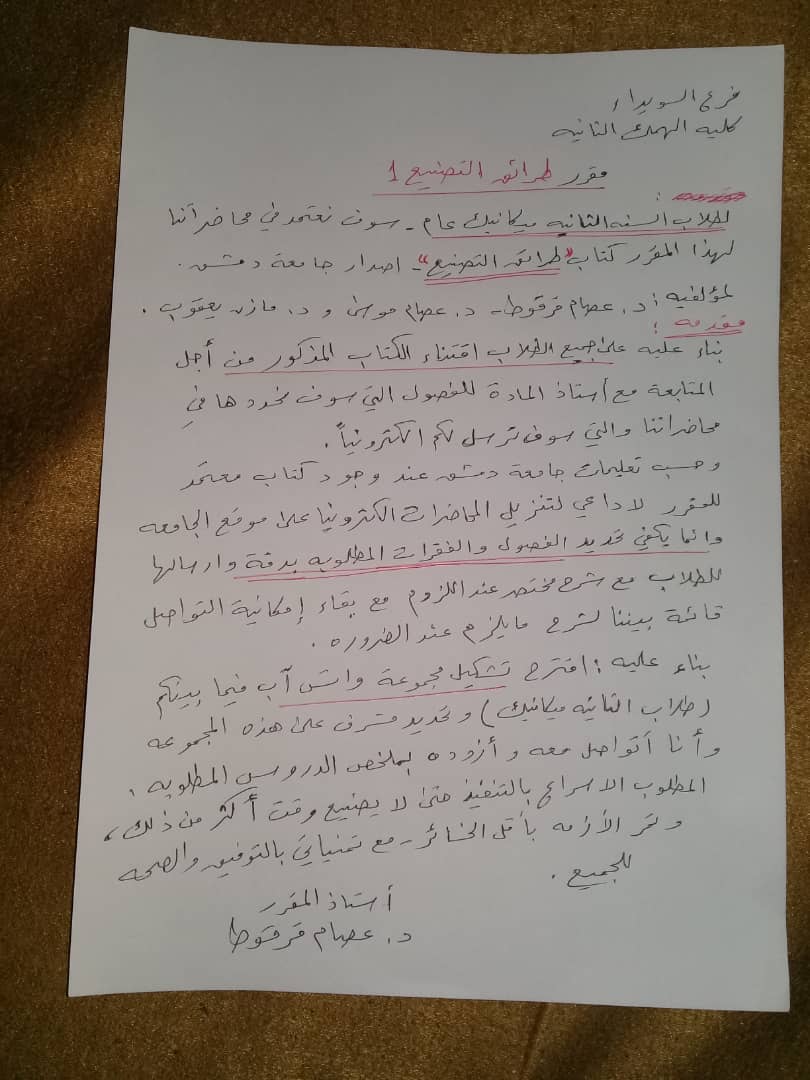 فرع السويداء
كلية الهمك الثانيه
مقرر طرائق التصنيع 1
لطلاب السنه الثانيه ميكانيك عام - سوف نعتمد في محاضراتنا
لهذا المقرر كتاب "طرائق التصنيع" - اصدار جامعة دمشق.
لمؤلفيه: د. عصام قرقوط - د. عصام موسى و د. مازن يعقوب.
مقدمه:
بناء عليه على جميع الطلاب اقتناء الكتاب المذكور من أجل
المتابعة مع أستاذ المادة للفصول التي سوف نحددها في
محاضراتنا والتي سوف ترسل لكم الكترونياً.
وحسب تعليمات جامعة دمشق عند وجود كتاب معتمد
للمقرر لا داعي لتنزيل المحاضرات الكترونيا على موقع الجامعه
وانما يكفي تحديد الفصول والفقرات المطلوبه بدقة وارسالها
للطلاب مع شرح مختصر عند اللزوم مع بقاء إمكانية التواصل
قائمة بيننا لشرح مايلزم عند الضروره.
بناء عليه: اقترح تشكيل مجموعة واتس آب فيما بينكم
(طلاب الثانيه ميكانيك) وتحديد مشرف على هذه المجموعه
وأنا أتواصل معه وأزوده بملخص الدروس المطلوبه.
المطلوب الاسراع بالتنفيذ حتى لا يضيع وقت أكثر من ذلك،
وتمر الأزمه بأقل الخسائر - مع تمنياتي بالتوفيق والصحه
للجميع.
أستاذ المقرر
د. عصام قرقوط